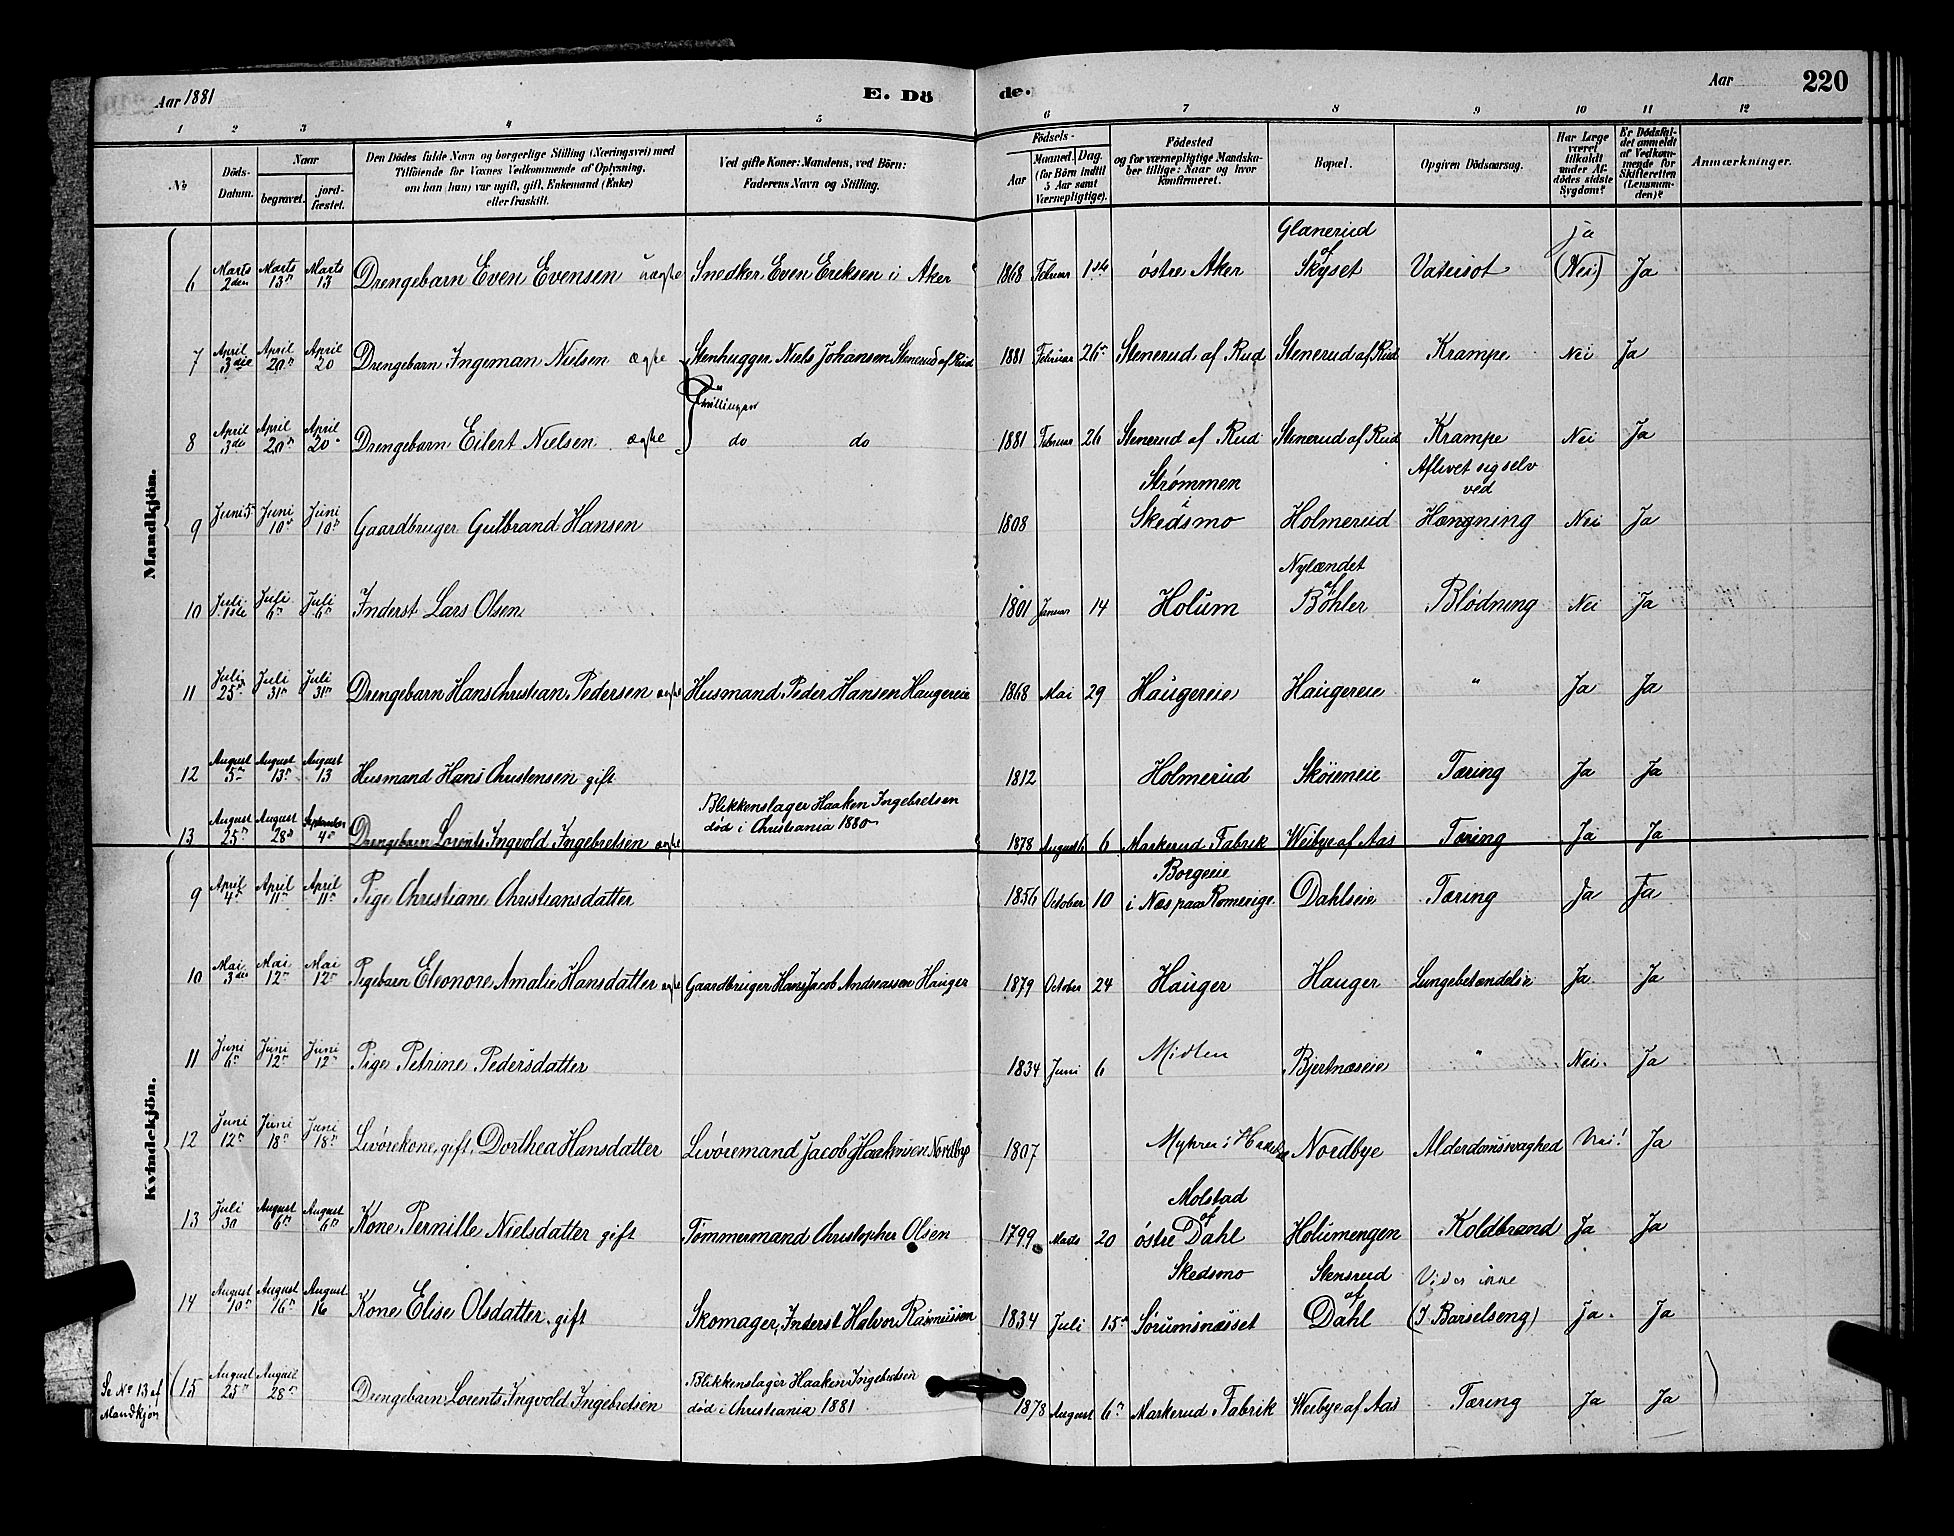 Aar 1881
E. Dö
de.
Aar
220
1 2 3 4 5 6 7 8 9 10 11 12
№
Döds-
Datum.
Naar
begravet.
jord-
fæstet.
Den Dödes fulde Navn og borgerlige Stilling (Næringsvei) med
Tilföiende for Voxnes Vedkommende af Oplysning,
om han (hun) var ugift, gift, Enkemand (Enke)
eller fraskilt.
Ved gifte Koner: Mandens, ved Börn:
Faderens Navn og Stilling.
Födsels-
Aar
Maaned.
Dag.
(for Börn indtil
5 Aar samt
Værnepligtige).
Födested
og for værnepligtige Mandska-
ber tillige: Naar og hvor
Konfirmeret.
Bopæl.
Opgiven Dödsaarsag.
Har Læge
været
tilkaldt
under Af-
dödes sidste
Sygdom?
Er Dödsfal-
det anmeldt
af Vedkom-
mende for
Skifteretten
(Lensman-
den)?
Anmærkninger.
Mandkjön.
6 Marts 2den Marts 13n Marts 13 Drengebarn Even Evensen uægte Snedker Even Eriksen i Aker 1868 Februar 1ste østre Aker Glanerud af Skyset Vatersot ja (Nei) Ja
7 April 3die April 20n April 20 Drengebarn Ingeman Nielsen ægte Stenhugger Niels Johansen Stenerud af Rud 1881 Februar 26n Stenerud af Rud Stenerud af Rud Krampe Nei Ja
Tvillinger
8 April 3die April 20n April 20n Drengebarn Eilert Nielsen ægte do do 1881 Februar 26 Stenerud af Rud Stenerud af Rud Krampe Nei Ja
9 Juni 5n Juni 10n Juni 10n Gaardbruger Gulbrand Hansen 1808 Strømmen i Skedsmo Holmerud Aflivet sig selv ved Hængning Nei Ja
10 Juli 1ste Juli 6n Juli 6n Inderst Lars Olsen 1801 Januar 14 Holum Nylændet af Böhler Blödning Nei Ja
11 Juli 25n Juli 31n Juli 31n Drengebarn Hans Christian Pedersen ægte Husmand Peder Hansen Haugereie 1868 Mai 29 Haugereie Haugereie " Ja Ja
12 August 5n August 13n August 13 Husmand Hans Christensen gift 1812 Holmerud Skøieneie Tæring Ja Ja
13 August 25n August 28n September 4n Drengebarn Lorents Ingvold Ingebretsen ægte Blikkenslager Haaken Ingebretsen død i Christiania 1880 1878 August 6 Markerud Fabrik Weibye af Aas Tæring Ja Ja
Kvindekjön.
9 April 4n April 11n April 11n Pige Christiane Christiansdatter 1856 October 10 Borgeie i Næs paa Romerige Dahlseie Tæring Ja Ja
10 Mai 3die Mai 12n Mai 12n Pigebarn Eleonore Amalie Hansdatter ægte Gaardbruger Hans Jacob Andreassen Hauger 1879 October 24 Hauger Hauger Lungebetændelse Ja Ja
11 Juni 6n Juni 12n Juni 12n Pige Petrine Pedersdatter 1834 Juni 6 Midten Bjertnæseie " Nei Ja
12 Juni 12n Juni 18n Juni 18n Livörekone, gift, Dorthea Hansdatter Livöremand Jacob Haakensen Nordby 1807 Myhrer i Nordbye Alderdomssvaghed Nei! Ja
13 Juli 30 August 6n August 6n Kone Pernille Nielsdatter gift Tömmermand Christopher Olsen 1799 Marts 20 Molstad af østre Dahl Holumengen Koldbrand Ja Ja
14 August 10n August 16n August 16 Kone Elise Olsdatter, gift Skomager, Inderst Halvor Rasmussen 1834 Juli 15n Skedsmo Sørumsnæsset Stensrud af Dahl Vides ikke (I Barselseng) Ja Ja
Se No 13 af
Mandkjön
(15 August 25n August 28n Drengebarn Lorents Ingvold Ingebretsen Blikkenslager Haaken Ingebretsen död i Christiania 1881 1878 August 6n Markerud Fabrik Weibye af Aas Tæring Ja Ja )